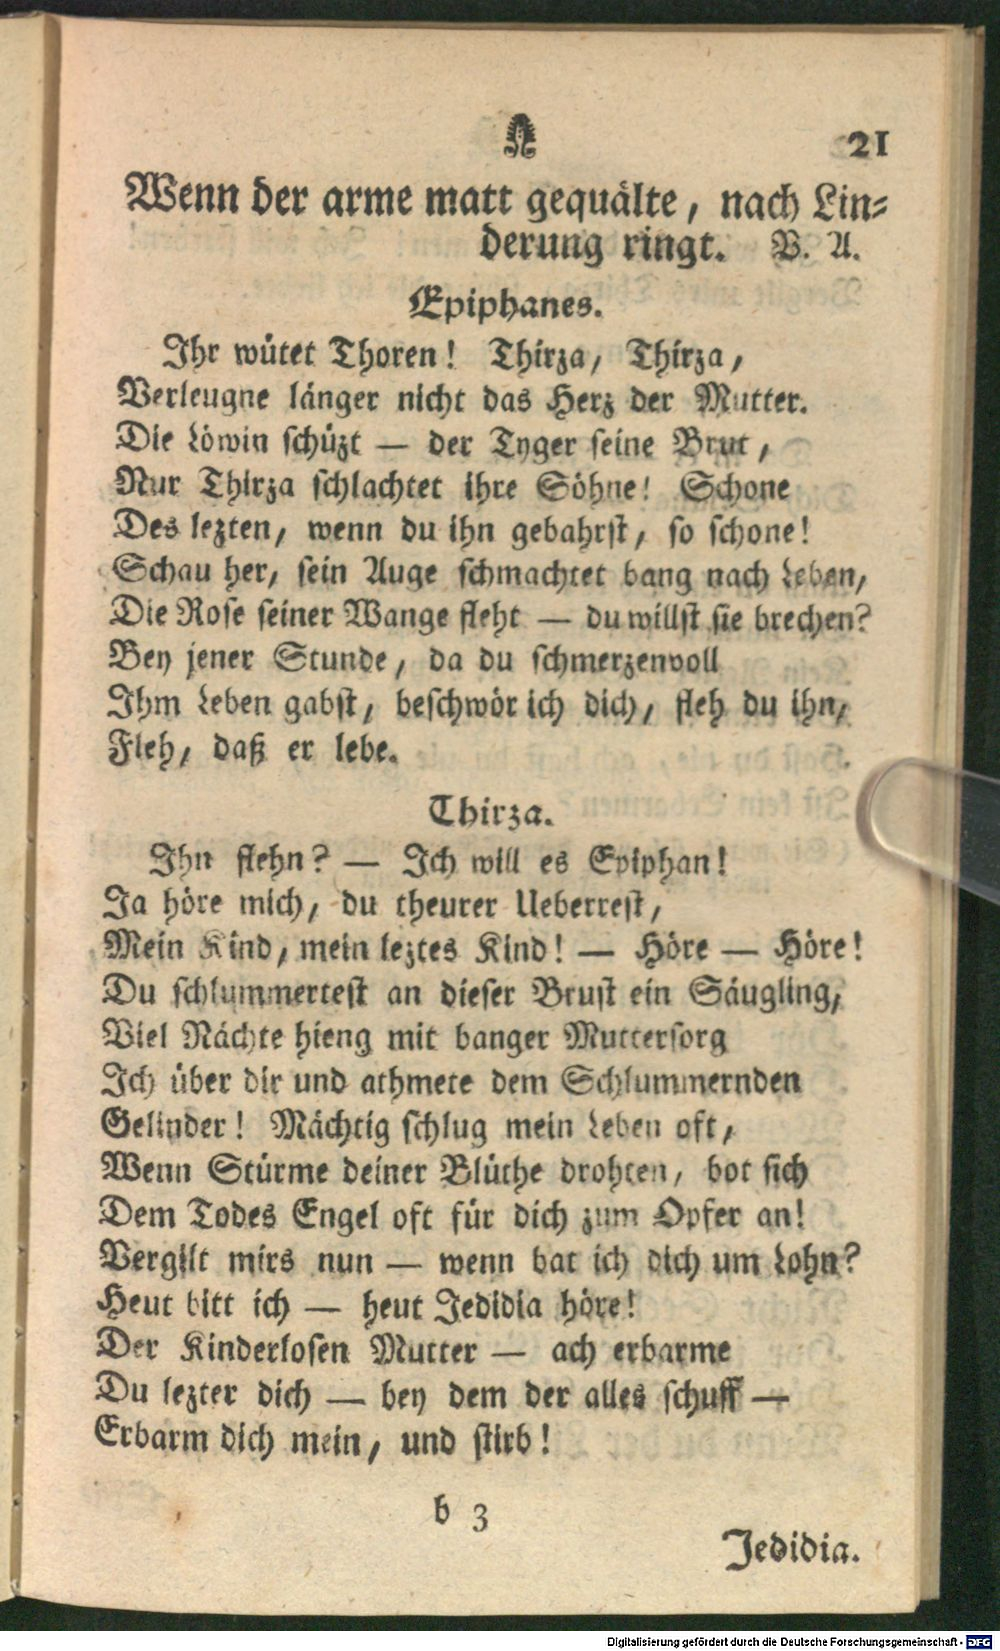 21
Wenn der arme matt gequälte, nach Lin-
derung ringt. V. A.
Epiphanes.
Ihr wütet Thoren! Thirza, Thirza,
Verleugne länger nicht das Herz der Mutter.
Die Löwin schüzt — der Tyger seine Brut,
Nur Thirza schlachtet ihre Söhne! Schone
Des lezten, wenn du ihn gebahrst, so schone!
Schau her, sein Auge schmachtet bang nach Leben,
Die Rose seiner Wange fleht — du willst sie brechen?
Bey jener Stunde, da du schmerzenvoll
Ihm Leben gabst, beschwör ich dich, fleh du ihn,
Fleh, daß er lebe.
Thirza.
Ihn flehn? — Ich will es Epiphan!
Ja höre mich, du theurer Ueberrest,
Mein Kind, mein leztes Kind! — Höre — Höre!
Du schlummertest an dieser Brust ein Säugling,
Viel Nächte hieng mit banger Muttersorg
Ich über dir und athmete dem Schlummernden
Gelinder! Mächtig schlug mein Leben oft,
Wenn Stürme deiner Blüthe drohten, bot sich
Dem Todes Engel oft für dich zum Opfer an!
Vergilt mirs nun — wenn bat ich dich um Lohn?
Heut bitt ich — heut Jedidia höre!
Der Kinderlosen Mutter — ach erbarme
Du lezter dich — bey dem der alles schuff —
Erbarm dich mein, und stirb!
b 3
Jedidia.
Digitalisierung gefördert durch die Deutsche Forschungsgemeinschaft - DFG